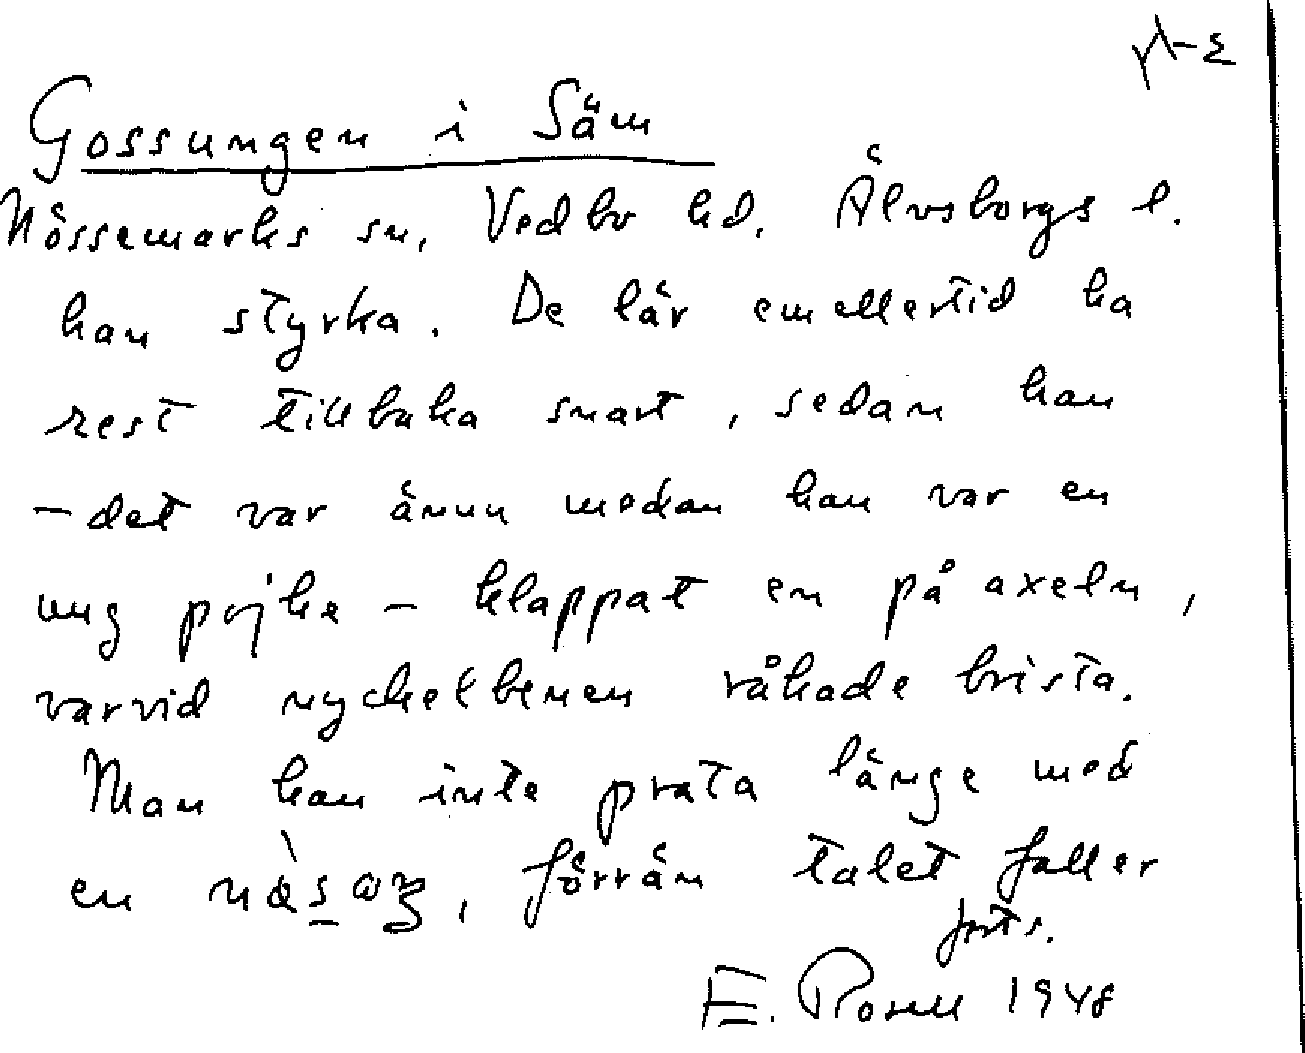 Gossungen i Säm
Nössemarks sn, Vedbo hd, Älvsborgs l.
han styrka. De lär emellertid ha
rest tillbaka snart, sedan han
– det var ännu medan han var en
ung pojke – klappat en på axeln,
varvid nyckelbenen råkade brista.
Man kan inte prata länge med
en, förrän talet faller
forts.
E. Rosell 1948